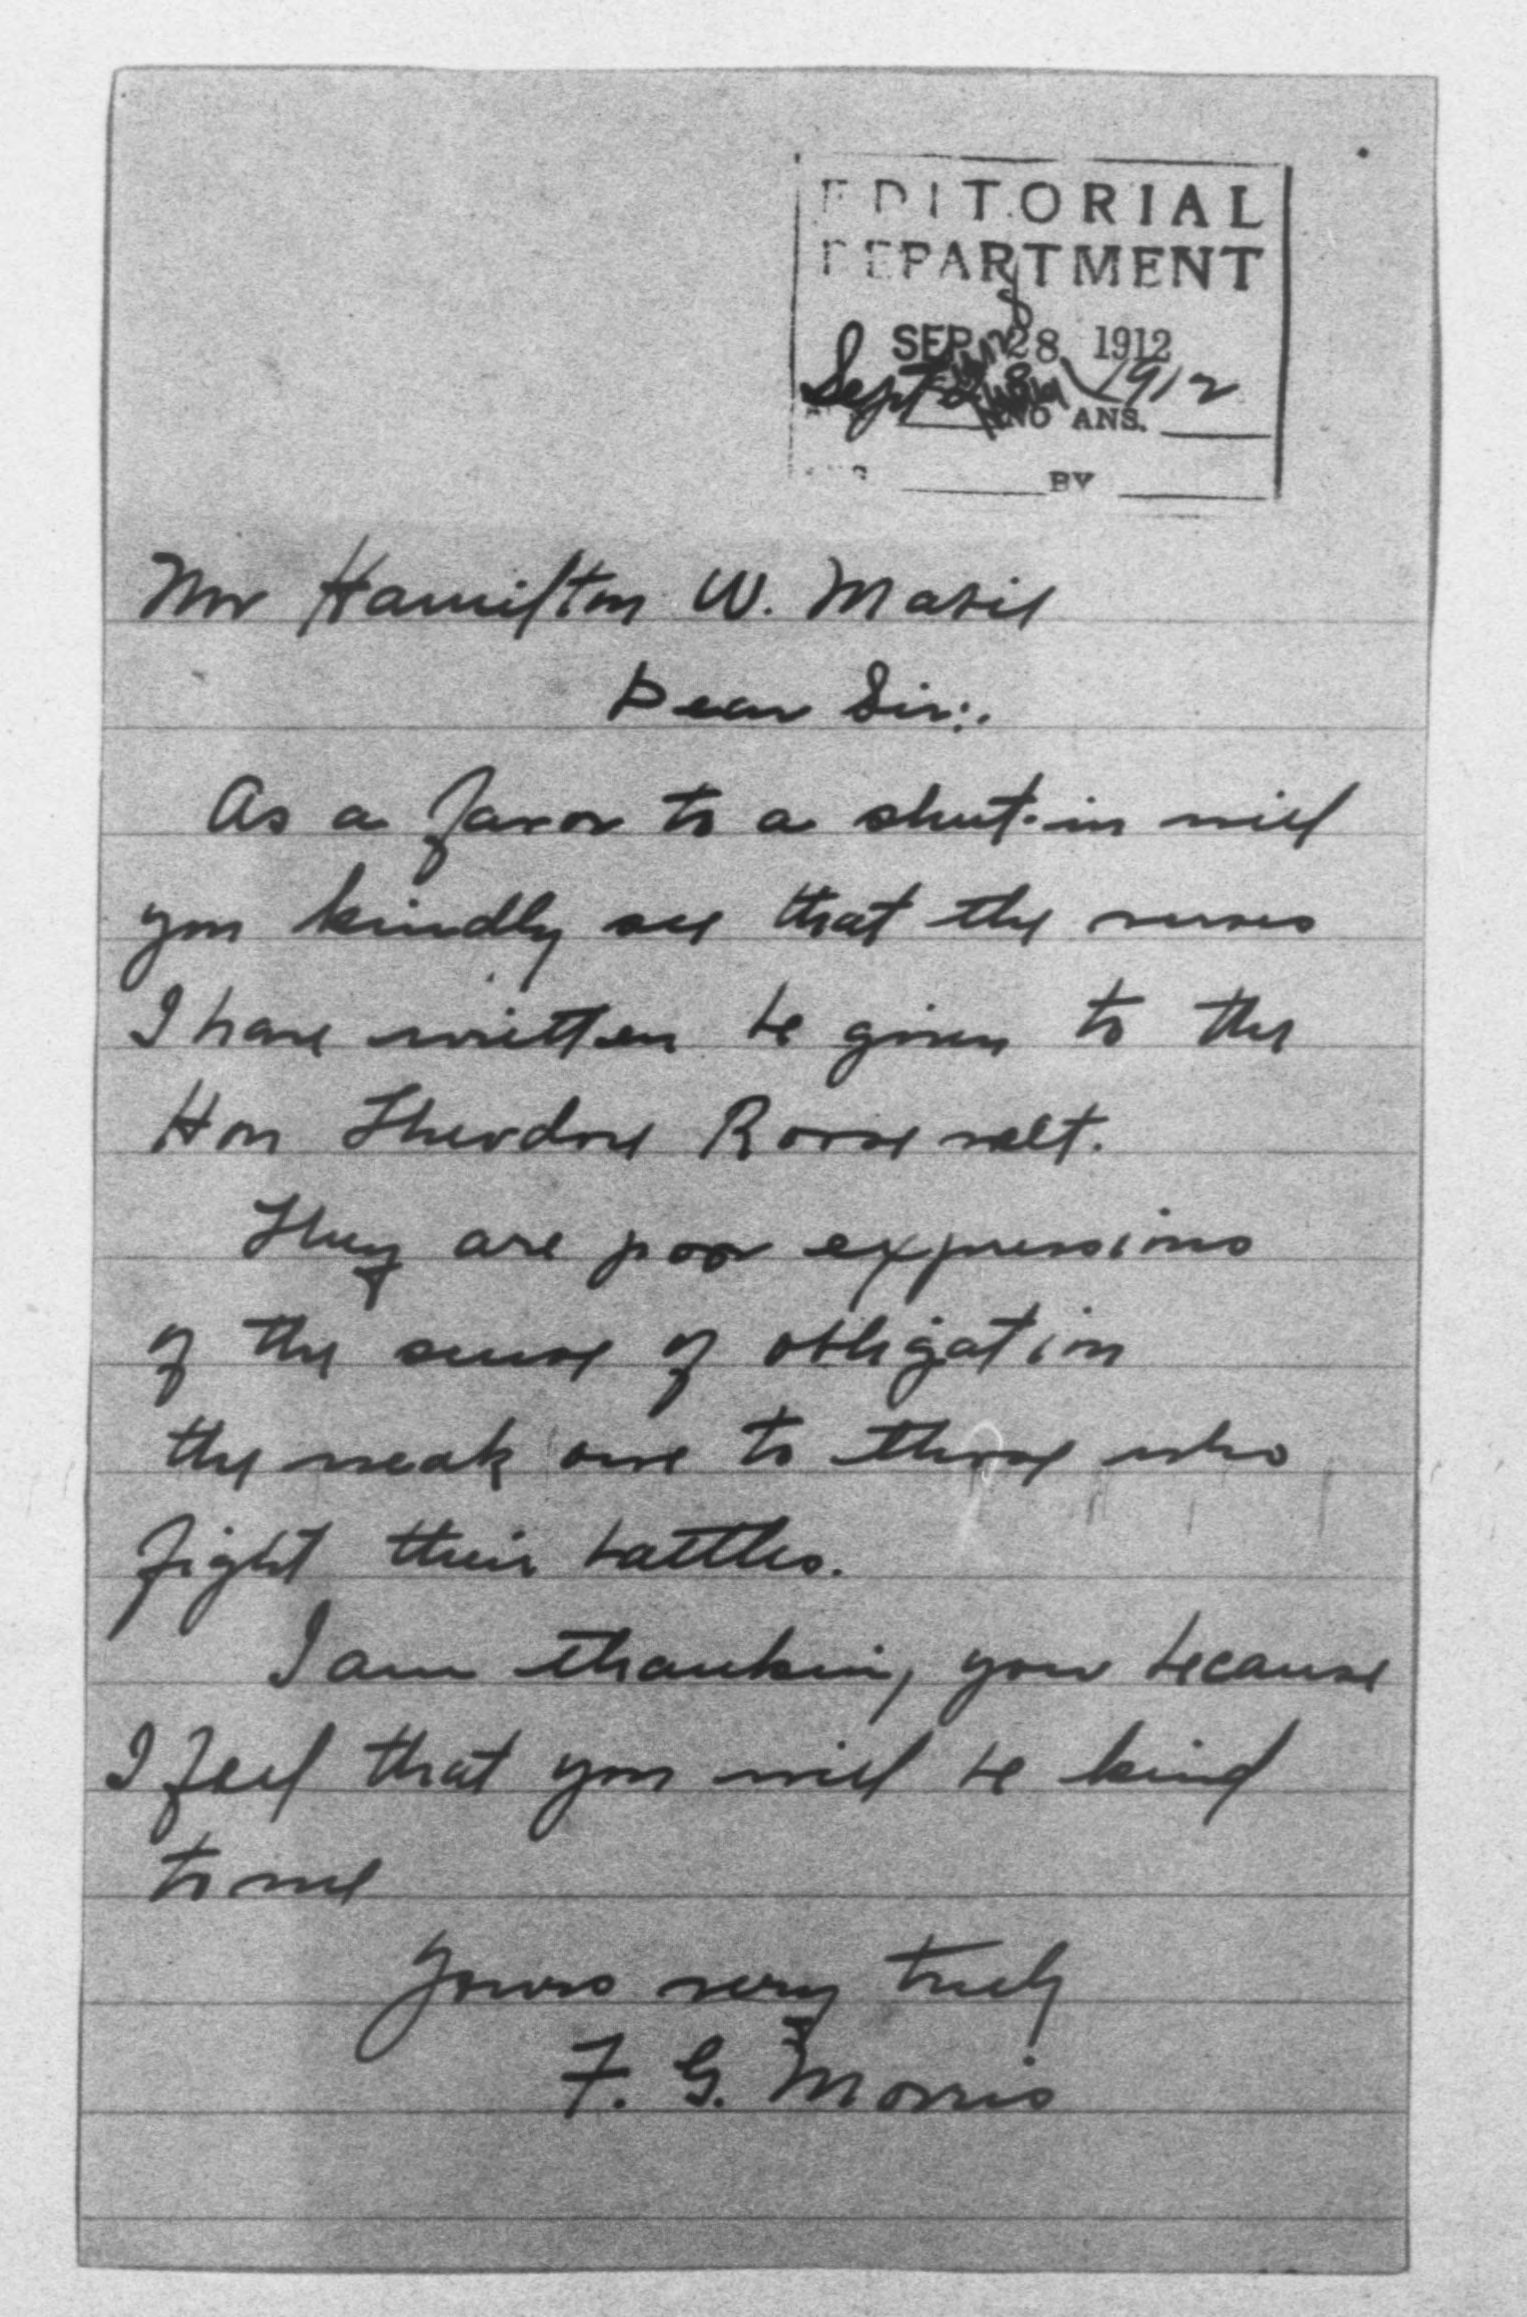 EDITORIAL
DEPARTMENT
SEP 28 1912
Sept 1912
NO ANS.
BY
Mr Hamilton W. Mabie
Dear Sir:.
As a favor to a shut-in will
you kindly see that the verses
I have written be given to the
Hon Theodore Roosevelt.
They are poor expressions
of the sense of obligation
the weak owe to those who
fight their battles.
I am thanking you because
I feel that you will be kind
to me
Yours very truly
F. G. Morris